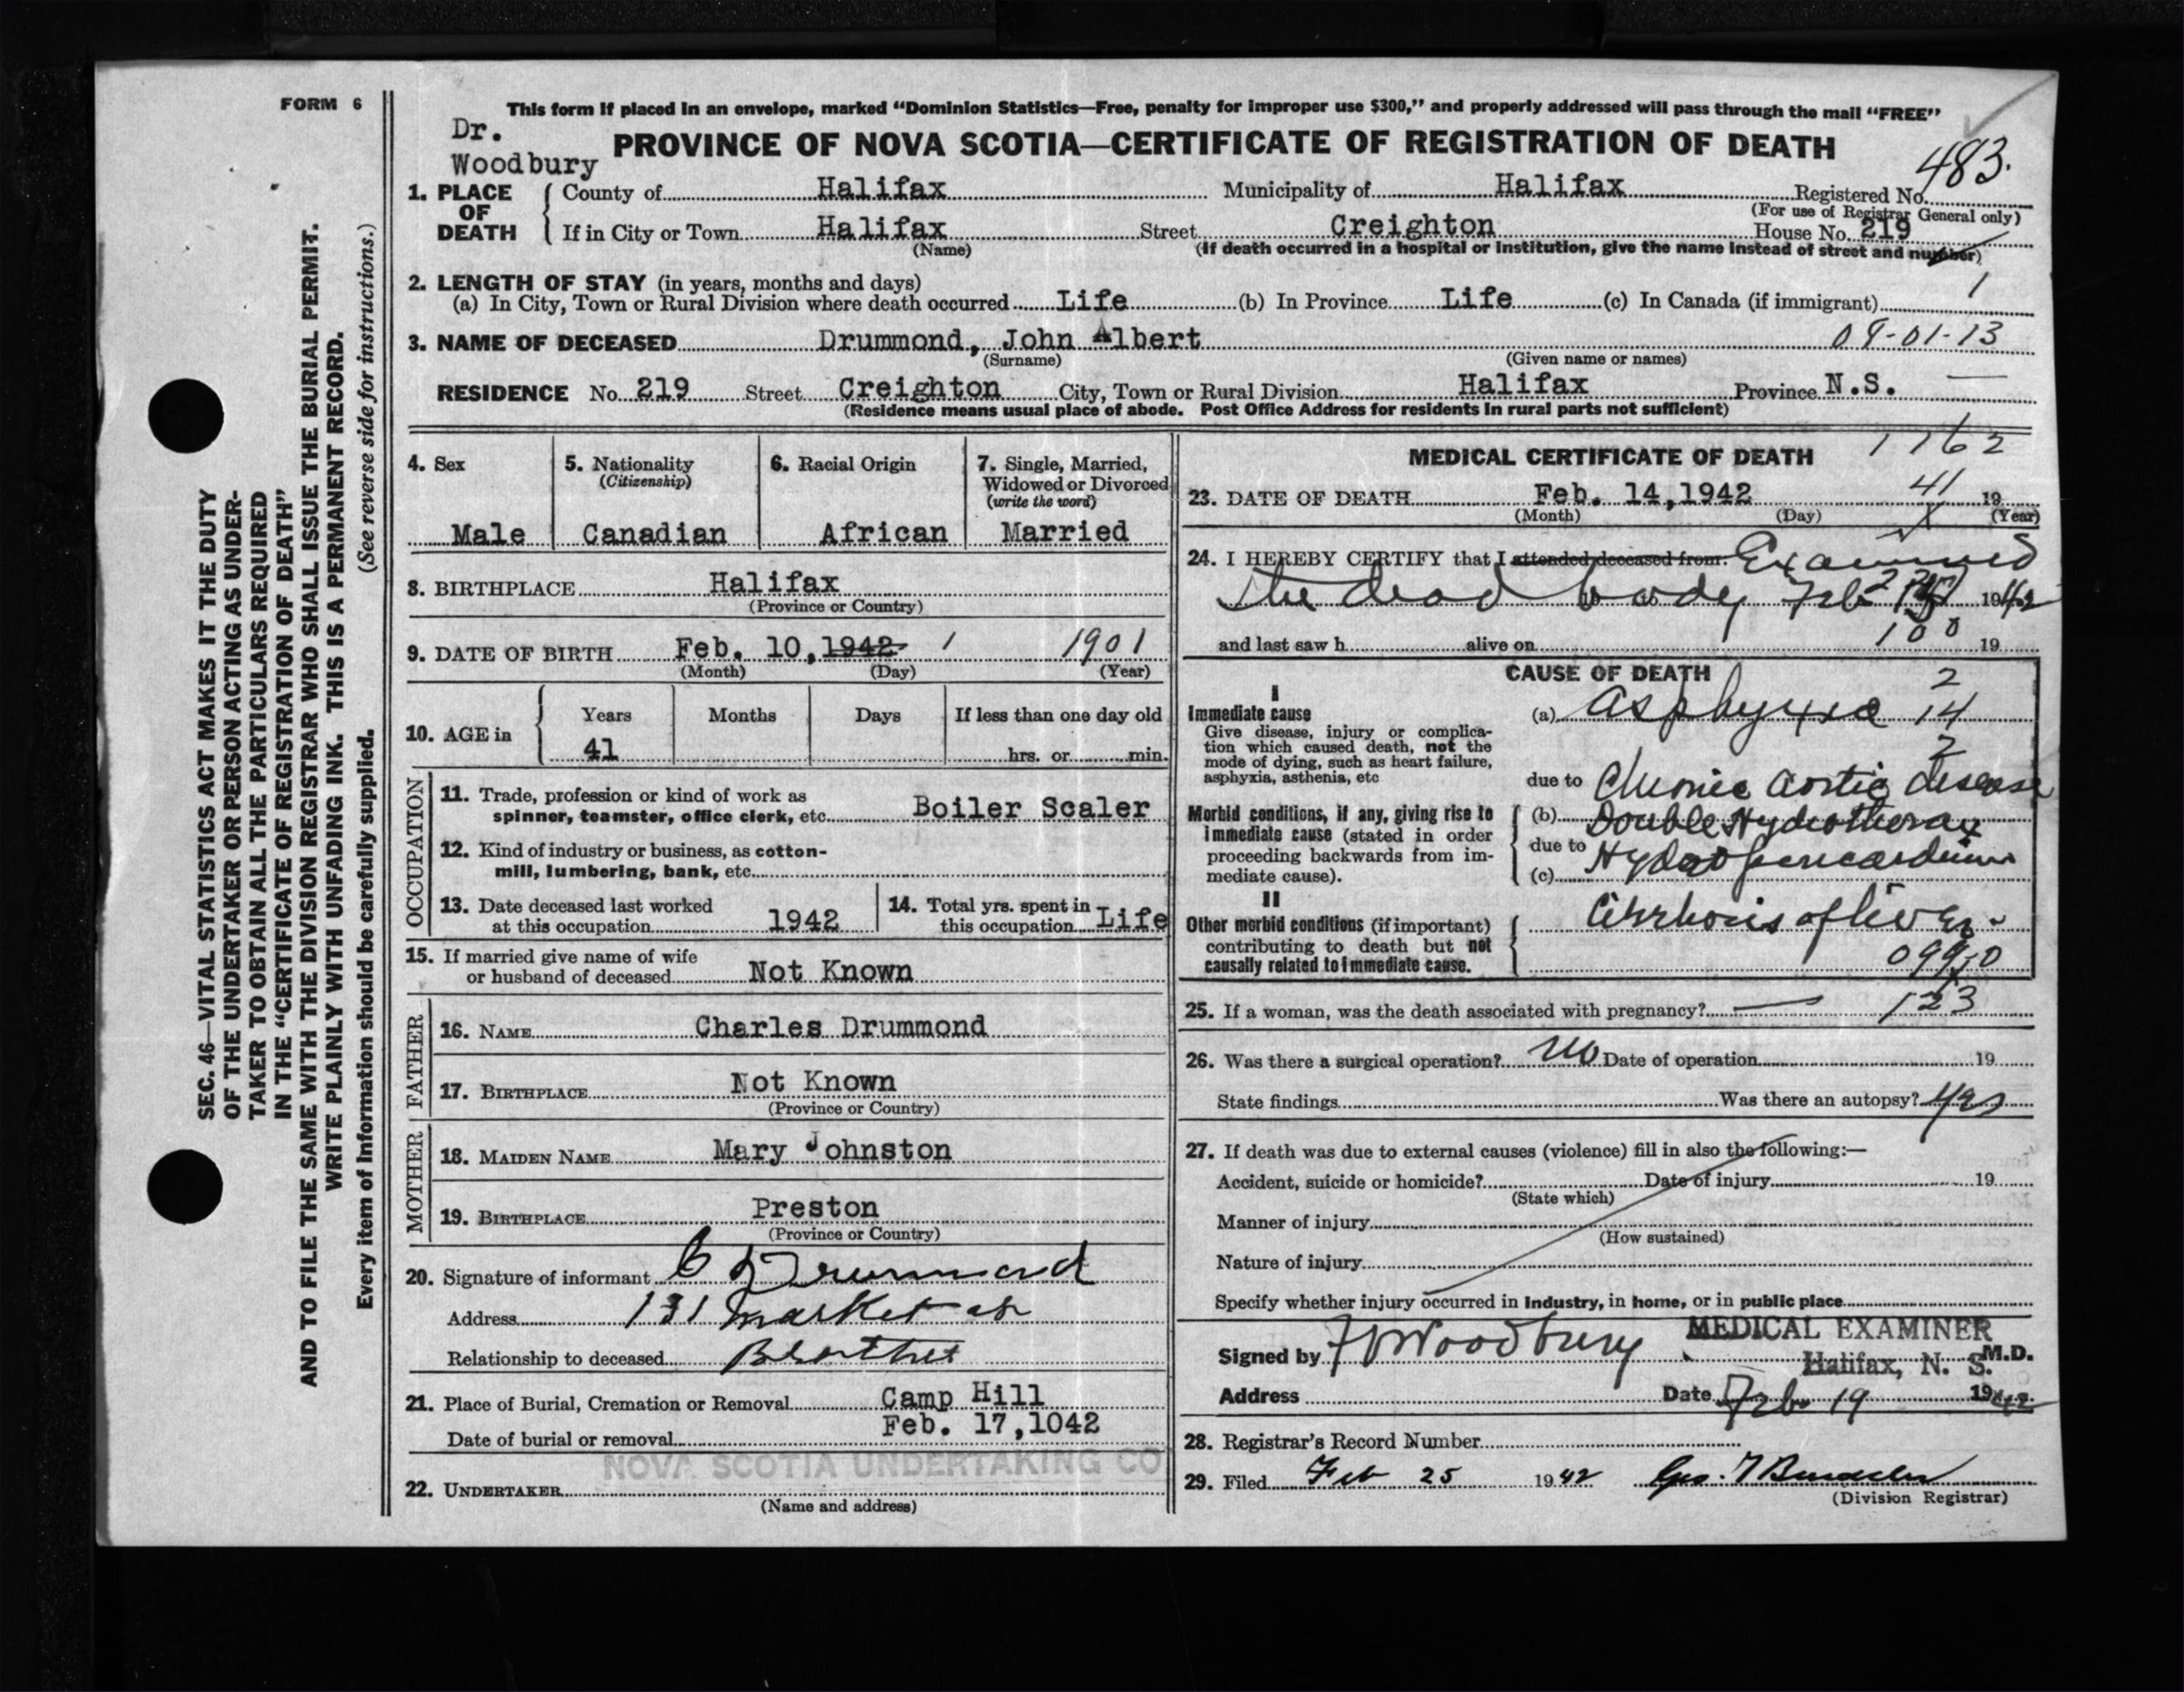 FORM 6
This form if placed in an envelope, marked "Dominion Statistics—Free, penalty for improper use $300," and properly addressed will pass through the mail "FREE"
Dr.
Woodbury
PROVINCE OF NOVA SCOTIA—CERTIFICATE OF REGISTRATION OF DEATH
483.
1. PLACE OF DEATH
County of Halifax Municipality of Halifax Registered No.
(For use of Registrar General only)
If in City or Town Halifax Street Creighton House No. 219
(Name) (If death occurred in a hospital or institution, give the name instead of street and number)
2. LENGTH OF STAY (in years, months and days)
(a) In City, Town or Rural Division where death occurred Life (b) In Province Life (c) In Canada (if immigrant) 1
3. NAME OF DECEASED Drummond, John Albert 09-01-13
(Surname) (Given name or names)
RESIDENCE No. 219 Street Creighton City, Town or Rural Division Halifax Province N.S. —
(Residence means usual place of abode. Post Office Address for residents in rural parts not sufficient)
4. Sex
Male
5. Nationality
(Citizenship)
Canadian
6. Racial Origin
African
7. Single, Married,
Widowed or Divorced
(write the word)
Married
8. BIRTHPLACE Halifax
(Province or Country)
9. DATE OF BIRTH Feb. 10, 1942 1 1901
(Month) (Day) (Year)
10. AGE in
Years Months Days If less than one day old
41 hrs. or min.
OCCUPATION
11. Trade, profession or kind of work as
spinner, teamster, office clerk, etc. Boiler Scaler
12. Kind of industry or business, as cotton-
mill, lumbering, bank, etc.
13. Date deceased last worked
at this occupation 1942
14. Total yrs. spent in
this occupation Life
15. If married give name of wife
or husband of deceased Not Known
FATHER
16. NAME Charles Drummond
17. BIRTHPLACE Not Known
(Province or Country)
MOTHER
18. MAIDEN NAME Mary Johnston
19. BIRTHPLACE Preston
(Province or Country)
20. Signature of informant C Drummond
Address 131 Market st
Relationship to deceased Brother
21. Place of Burial, Cremation or Removal Camp Hill
Date of burial or removal Feb. 17,1042
NOVA SCOTIA UNDERTAKING CO
22. UNDERTAKER
(Name and address)
MEDICAL CERTIFICATE OF DEATH 1762
23. DATE OF DEATH Feb. 14,1942 41 19
(Month) (Day) (Year)
24. I HEREBY CERTIFY that I attended deceased from: Examined
the dead body Feb 1942
and last saw h alive on 100 19
CAUSE OF DEATH
I
Immediate cause
Give disease, injury or complica-
tion which caused death, not the
mode of dying, such as heart failure,
asphyxia, asthenia, etc
(a) Asphyxia
2
14
2
due to Chronic aortic disease
Morbid conditions, if any, giving rise to
immediate cause (stated in order
proceeding backwards from im-
mediate cause).
(b) Double Hydrothorax
due to
(c) Hydropericardium
II
Other morbid conditions (if important)
contributing to death but not
causally related to immediate cause.
Cirrhosis of liver
09910
25. If a woman, was the death associated with pregnancy? — 123
26. Was there a surgical operation? No Date of operation 19
State findings Was there an autopsy? yes
27. If death was due to external causes (violence) fill in also the following:—
Accident, suicide or homicide? Date of injury 19
(State which)
Manner of injury
(How sustained)
Nature of injury
Specify whether injury occurred in industry, in home, or in public place
MEDICAL EXAMINER
Signed by Woodbury Halifax, N. S. M.D.
Address Date Feb 19 1942
28. Registrar's Record Number
29. Filed Feb 25 1942
(Division Registrar)
SEC. 46—VITAL STATISTICS ACT MAKES IT THE DUTY
OF THE UNDERTAKER OR PERSON ACTING AS UNDER-
TAKER TO OBTAIN ALL THE PARTICULARS REQUIRED
IN THE "CERTIFICATE OF REGISTRATION OF DEATH"
AND TO FILE THE SAME WITH THE DIVISION REGISTRAR WHO SHALL ISSUE THE BURIAL PERMIT.
WRITE PLAINLY WITH UNFADING INK. THIS IS A PERMANENT RECORD.
Every item of information should be carefully supplied. (See reverse side for instructions.)